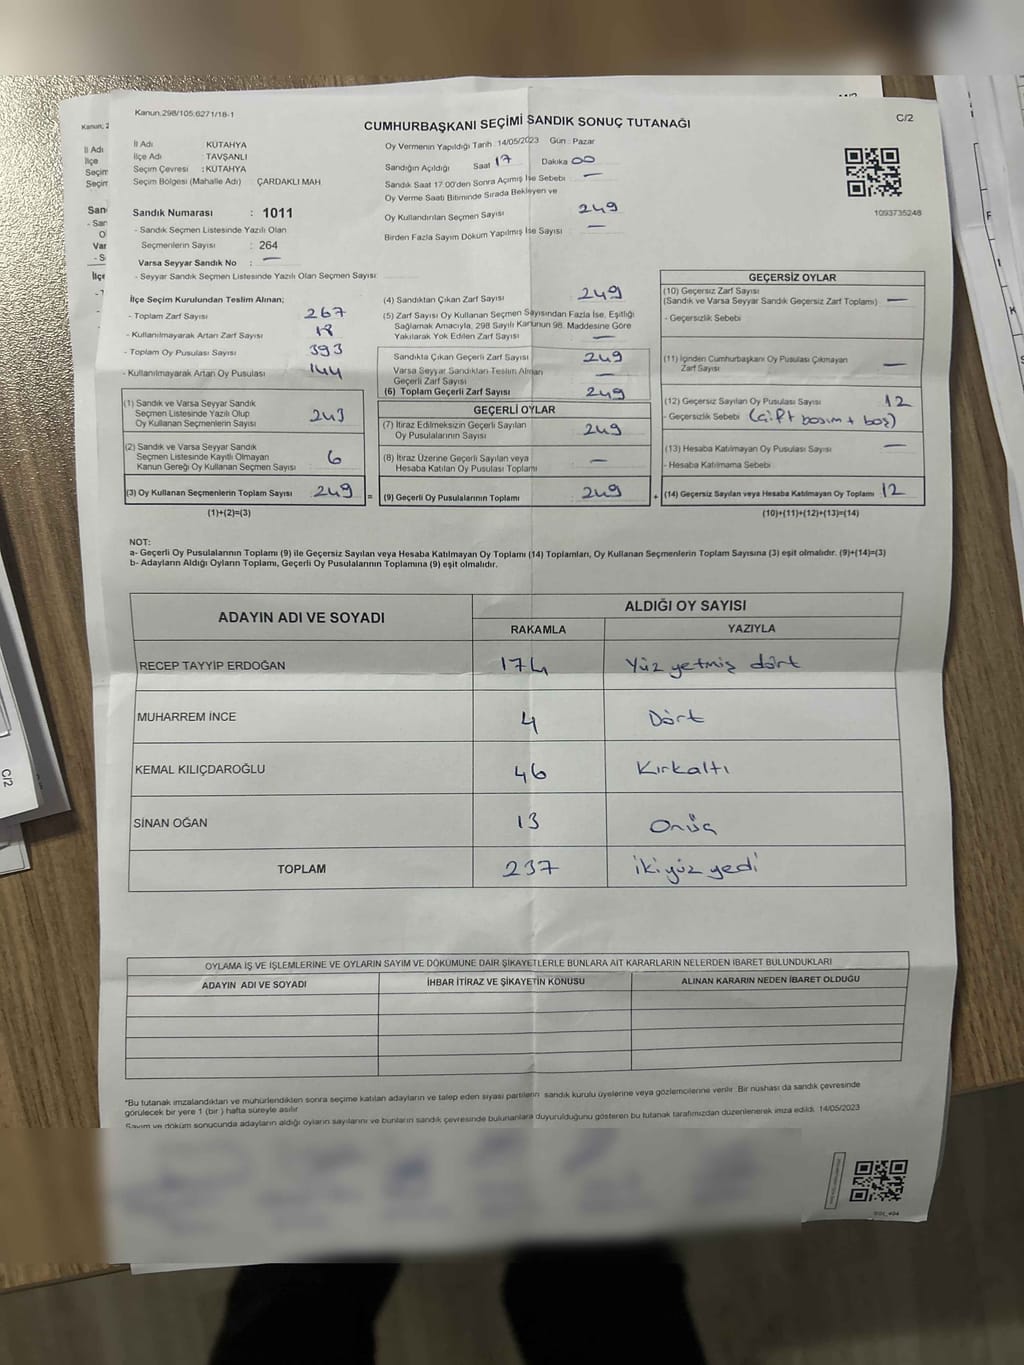 Kanun;298/105;6271/18-1
CUMHURBAŞKANI SEÇİMİ SANDIK SONUÇ TUTANAĞI
C/2
Kanun; 2
İl Adı KÜTAHYA
İlçe Adı TAVŞANLI
Seçim Çevresi : KÜTAHYA
Seçim Bölgesi (Mahalle Adı) ÇARDAKLI MAH
Oy Vermenin Yapıldığı Tarih 14/05/2023 Gün : Pazar
Sandığın Açıldığı Saat 17 Dakika 00
Sandık Saat 17:00'den Sonra Açımış İse Sebebi —
Oy Verme Saati Bitiminde Sırada Bekleyen ve
Oy Kullandırılan Seçmen Sayısı 249
Birden Fazla Sayım Döküm Yapılmış İse Sayısı —
1093735248
Sandık Numarası : 1011
- Sandık Seçmen Listesinde Yazılı Olan
Seçmenlerin Sayısı : 264
Varsa Seyyar Sandık No : —
- Seyyar Sandık Seçmen Listesinde Yazılı Olan Seçmen Sayısı
İlçe Seçim Kurulundan Teslim Alınan;
- Toplam Zarf Sayısı 267
- Kullanılmayarak Artan Zarf Sayısı 18
- Toplam Oy Pusulası Sayısı 393
- Kullanılmayarak Artan Oy Pusulası 144
(1) Sandık ve Varsa Seyyar Sandık
Seçmen Listesinde Yazılı Olup
Oy Kullanan Seçmenlerin Sayısı 243
(2) Sandık ve Varsa Seyyar Sandık
Seçmen Listesinde Kayıtlı Olmayan
Kanun Gereği Oy Kullanan Seçmen Sayısı 6
(3) Oy Kullanan Seçmenlerin Toplam Sayısı 249 =
(1)+(2)=(3)
(4) Sandıktan Çıkan Zarf Sayısı 249
(5) Zarf Sayısı Oy Kullanan Seçmen Sayısından Fazla İse, Eşitliği
Sağlamak Amacıyla, 298 Sayılı Kanunun 98. Maddesine Göre
Yakılarak Yok Edilen Zarf Sayısı —
Sandıkta Çıkan Geçerli Zarf Sayısı 249
Varsa Seyyar Sandıktan Teslim Alınan
Geçerli Zarf Sayısı —
(6) Toplam Geçerli Zarf Sayısı 249
GEÇERLİ OYLAR
(7) İtiraz Edilmeksizin Geçerli Sayılan
Oy Pusulalarının Sayısı 249
(8) İtiraz Üzerine Geçerli Sayılan ve
Hesaba Katılan Oy Pusulası Toplamı —
(9) Geçerli Oy Pusulalarının Toplamı 249 +
GEÇERSİZ OYLAR
(10) Geçersiz Zarf Sayısı
(Sandık ve Varsa Seyyar Sandık Geçersiz Zarf Toplamı) —
- Geçersizlik Sebebi
(11) İçinden Cumhurbaşkanı Oy Pusulası Çıkmayan
Zarf Sayısı —
(12) Geçersiz Sayılan Oy Pusulası Sayısı 12
- Geçersizlik Sebebi (Çift basım + boş)
(13) Hesaba Katılmayan Oy Pusulası Sayısı —
- Hesaba Katılmama Sebebi
(14) Geçersiz Sayılan veya Hesaba Katılmayan Oy Toplamı 12
(10)+(11)+(12)+(13)=(14)
NOT:
a- Geçerli Oy Pusulalarının Toplamı (9) ile Geçersiz Sayılan veya Hesaba Katılmayan Oy Toplamı (14) Toplamları, Oy Kullanan Seçmenlerin Toplam Sayısına (3) eşit olmalıdır. (9)+(14)=(3)
b- Adayların Aldığı Oyların Toplamı, Geçerli Oy Pusulalarının Toplamına (9) eşit olmalıdır.
ADAYIN ADI VE SOYADI ALDIĞI OY SAYISI
RAKAMLA YAZIYLA
RECEP TAYYİP ERDOĞAN 174 Yüz yetmiş dört
MUHARREM İNCE 4 Dört
KEMAL KILIÇDAROĞLU 46 Kırkaltı
SİNAN OĞAN 13 Onüç
TOPLAM 237 İkiyüz yedi
OYLAMA İŞ VE İŞLEMLERİNE VE OYLARIN SAYIM VE DÖKÜMÜNE DAİR ŞİKAYETLERLE BUNLARA AİT KARARLARIN NELERDEN İBARET BULUNDUKLARI
ADAYIN ADI VE SOYADI İHBAR İTİRAZ VE ŞİKAYETİN KONUSU ALINAN KARARIN NEDEN İBARET OLDUĞU
*Bu tutanak imzalandıktan ve mühürlendikten sonra seçime katılan adayların ve talep eden siyasi partilerin sandık kurulu üyelerine veya gözlemcilerine verilir. Bir nüshası da sandık çevresinde
görülecek bir yere 1 (bir) hafta süreyle asılır
Sayım ve döküm sonucunda adayların aldığı oyların sayılarını ve bunların sandık çevresinde bulunanlara duyurulduğunu gösteren bu tutanak tarafımızdan düzenlenerek imza edildi. 14/05/2023
C/2